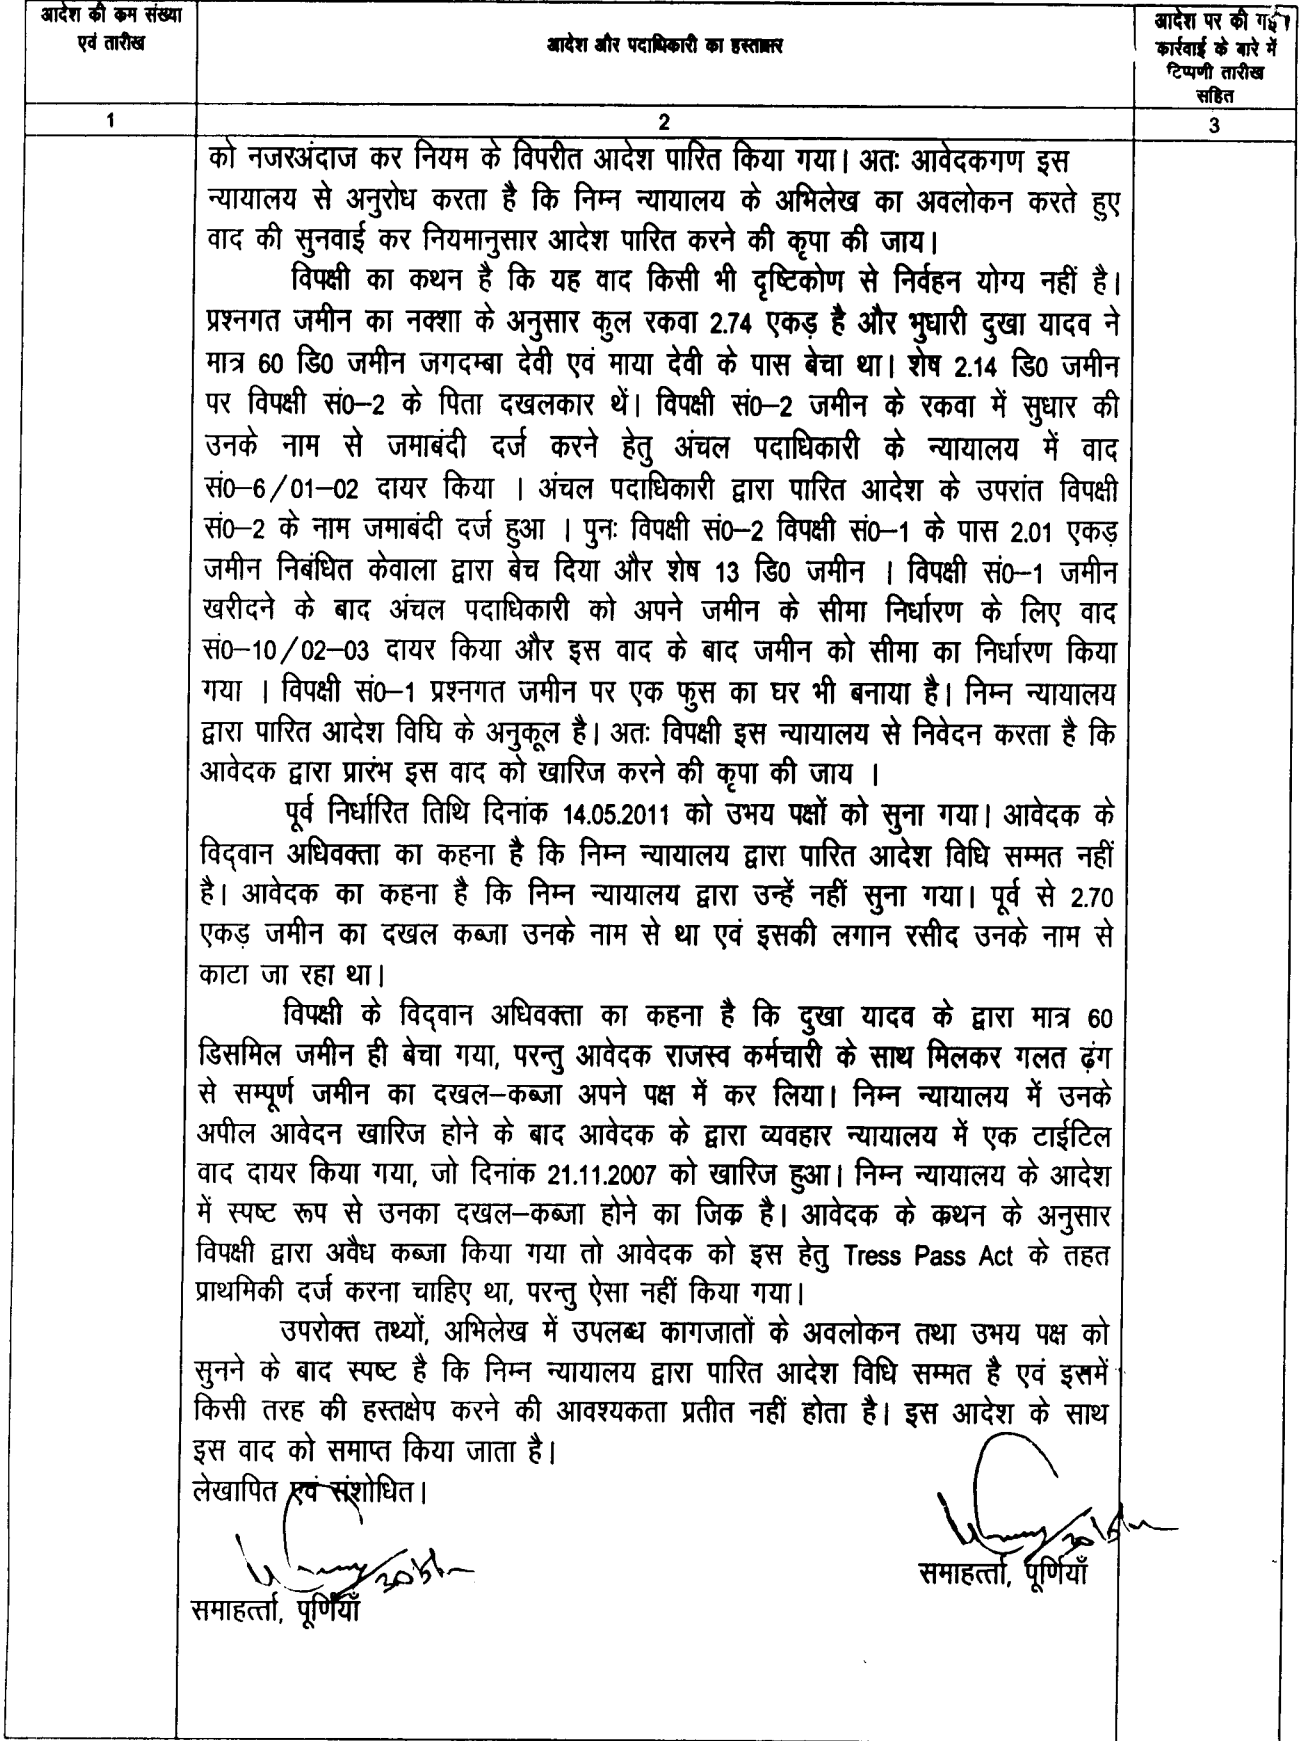 आदेश की कम संख्या
एवं तारीख
आदेश और पदाधिकारी का हस्ताक्षर
आदेश पर की गई
कार्रवाई के बारे में
टिप्पणी तारीख
सहित
1
2
3
को नजरअंदाज कर नियम के विपरीत आदेश पारित किया गया। अतः आवेदकगण इस
न्यायालय से अनुरोध करता है कि निम्न न्यायालय के अभिलेख का अवलोकन करते हुए
वाद की सुनवाई कर नियमानुसार आदेश पारित करने की कृपा की जाय।
विपक्षी का कथन है कि यह वाद किसी भी दृष्टिकोण से निर्वहन योग्य नहीं है।
प्रश्नगत जमीन का नक्शा के अनुसार कुल रकवा 2.74 एकड़ है और भुधारी दुखा यादव ने
मात्र 60 डि0 जमीन जगदम्बा देवी एवं माया देवी के पास बेचा था। शेष 2.14 डि0 जमीन
पर विपक्षी सं0–2 के पिता दखलकार थें। विपक्षी सं0–2 जमीन के रकवा में सुधार की
उनके नाम से जमाबंदी दर्ज करने हेतु अंचल पदाधिकारी के न्यायालय में वाद
सं0–6/01–02 दायर किया । अंचल पदाधिकारी द्वारा पारित आदेश के उपरांत विपक्षी
सं0–2 के नाम जमाबंदी दर्ज हुआ । पुनः विपक्षी सं0–2 विपक्षी सं0–1 के पास 2.01 एकड़
जमीन निबंधित केवाला द्वारा बेच दिया और शेष 13 डि0 जमीन । विपक्षी सं0–1 जमीन
खरीदने के बाद अंचल पदाधिकारी को अपने जमीन के सीमा निर्धारण के लिए वाद
सं0–10/02–03 दायर किया और इस वाद के बाद जमीन को सीमा का निर्धारण किया
गया । विपक्षी सं0–1 प्रश्नगत जमीन पर एक फुस का घर भी बनाया है। निम्न न्यायालय
द्वारा पारित आदेश विधि के अनुकूल है। अतः विपक्षी इस न्यायालय से निवेदन करता है कि
आवेदक द्वारा प्रारंभ इस वाद को खारिज करने की कृपा की जाय ।
पूर्व निर्धारित तिथि दिनांक 14.05.2011 को उभय पक्षों को सुना गया। आवेदक के
विद्वान अधिवक्ता का कहना है कि निम्न न्यायालय द्वारा पारित आदेश विधि सम्मत नहीं
है। आवेदक का कहना है कि निम्न न्यायालय द्वारा उन्हें नहीं सुना गया। पूर्व से 2.70
एकड़ जमीन का दखल कब्जा उनके नाम से था एवं इसकी लगान रसीद उनके नाम से
काटा जा रहा था।
विपक्षी के विद्वान अधिवक्ता का कहना है कि दुखा यादव के द्वारा मात्र 60
डिसमिल जमीन ही बेचा गया, परन्तु आवेदक राजस्व कर्मचारी के साथ मिलकर गलत ढ़ंग
से सम्पूर्ण जमीन का दखल–कब्जा अपने पक्ष में कर लिया। निम्न न्यायालय में उनके
अपील आवेदन खारिज होने के बाद आवेदक के द्वारा व्यवहार न्यायालय में एक टाईटिल
वाद दायर किया गया, जो दिनांक 21.11.2007 को खारिज हुआ। निम्न न्यायालय के आदेश
में स्पष्ट रूप से उनका दखल–कब्जा होने का जिक है। आवेदक के कथन के अनुसार
विपक्षी द्वारा अवैध कब्जा किया गया तो आवेदक को इस हेतु Tress Pass Act के तहत
प्राथमिकी दर्ज करना चाहिए था, परन्तु ऐसा नहीं किया गया।
उपरोक्त तथ्यों, अभिलेख में उपलब्ध कागजातों के अवलोकन तथा उभय पक्ष को
सुनने के बाद स्पष्ट है कि निम्न न्यायालय द्वारा पारित आदेश विधि सम्मत है एवं इसमें
किसी तरह की हस्तक्षेप करने की आवश्यकता प्रतीत नहीं होता है। इस आदेश के साथ
इस वाद को समाप्त किया जाता है।
लेखापित एवं संशोधित।
समाहर्त्ता, पूर्णियाँ
समाहर्त्ता, पूर्णियाँ